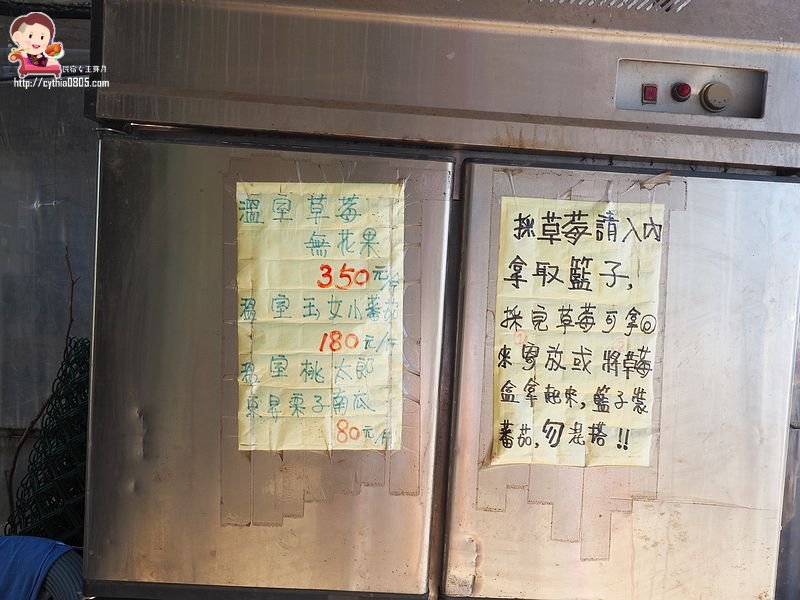 民宿女王芽月
http://cythia0805.com
溫室草莓
無花果
350元/斤
溫室玉女小蕃茄
180元/斤
溫室桃太郎
東昇栗子南瓜
80元/斤
採草莓請入內
拿取籃子,
採完草莓可拿回
來寄放或將草莓
盒拿起來,籃子裝
蕃茄,勿混搭!!